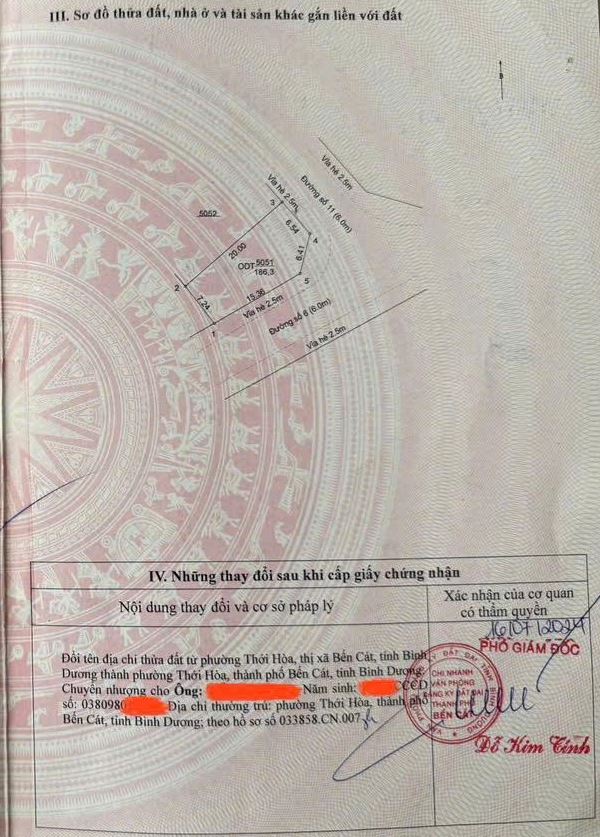 III. Sơ đồ thửa đất, nhà ở và tài sản khác gắn liền với đất
B
Vỉa hè 2.5m
Vỉa hè 2.5m
Đường số 11 (6.0m)
5052
3
6.54
4
20.00
6.41
ODT 5051
186,3
5
2
7.24
15.36
Vỉa hè 2.5m
1
Đường số 6 (6.0m)
Vỉa hè 2.5m
IV. Những thay đổi sau khi cấp giấy chứng nhận
Nội dung thay đổi và cơ sở pháp lý
Xác nhận của cơ quan
có thẩm quyền
16/07/2024
PHÓ GIÁM ĐỐC
Đổi tên địa chỉ thửa đất từ phường Thới Hòa, thị xã Bến Cát, tỉnh Bình
Dương thành phường Thới Hòa, thành phố Bến Cát, tỉnh Bình Dương.
Chuyển nhượng cho Ông: Năm sinh: CCCD
số: 038098 Địa chỉ thường trú: phường Thới Hòa, thành phố
Bến Cát, tỉnh Bình Dương; theo hồ sơ số 033858.CN.007
CHI NHÁNH
VĂN PHÒNG
ĐĂNG KÝ ĐẤT ĐAI
THÀNH PHỐ
BẾN CÁT
Đỗ Kim Tính